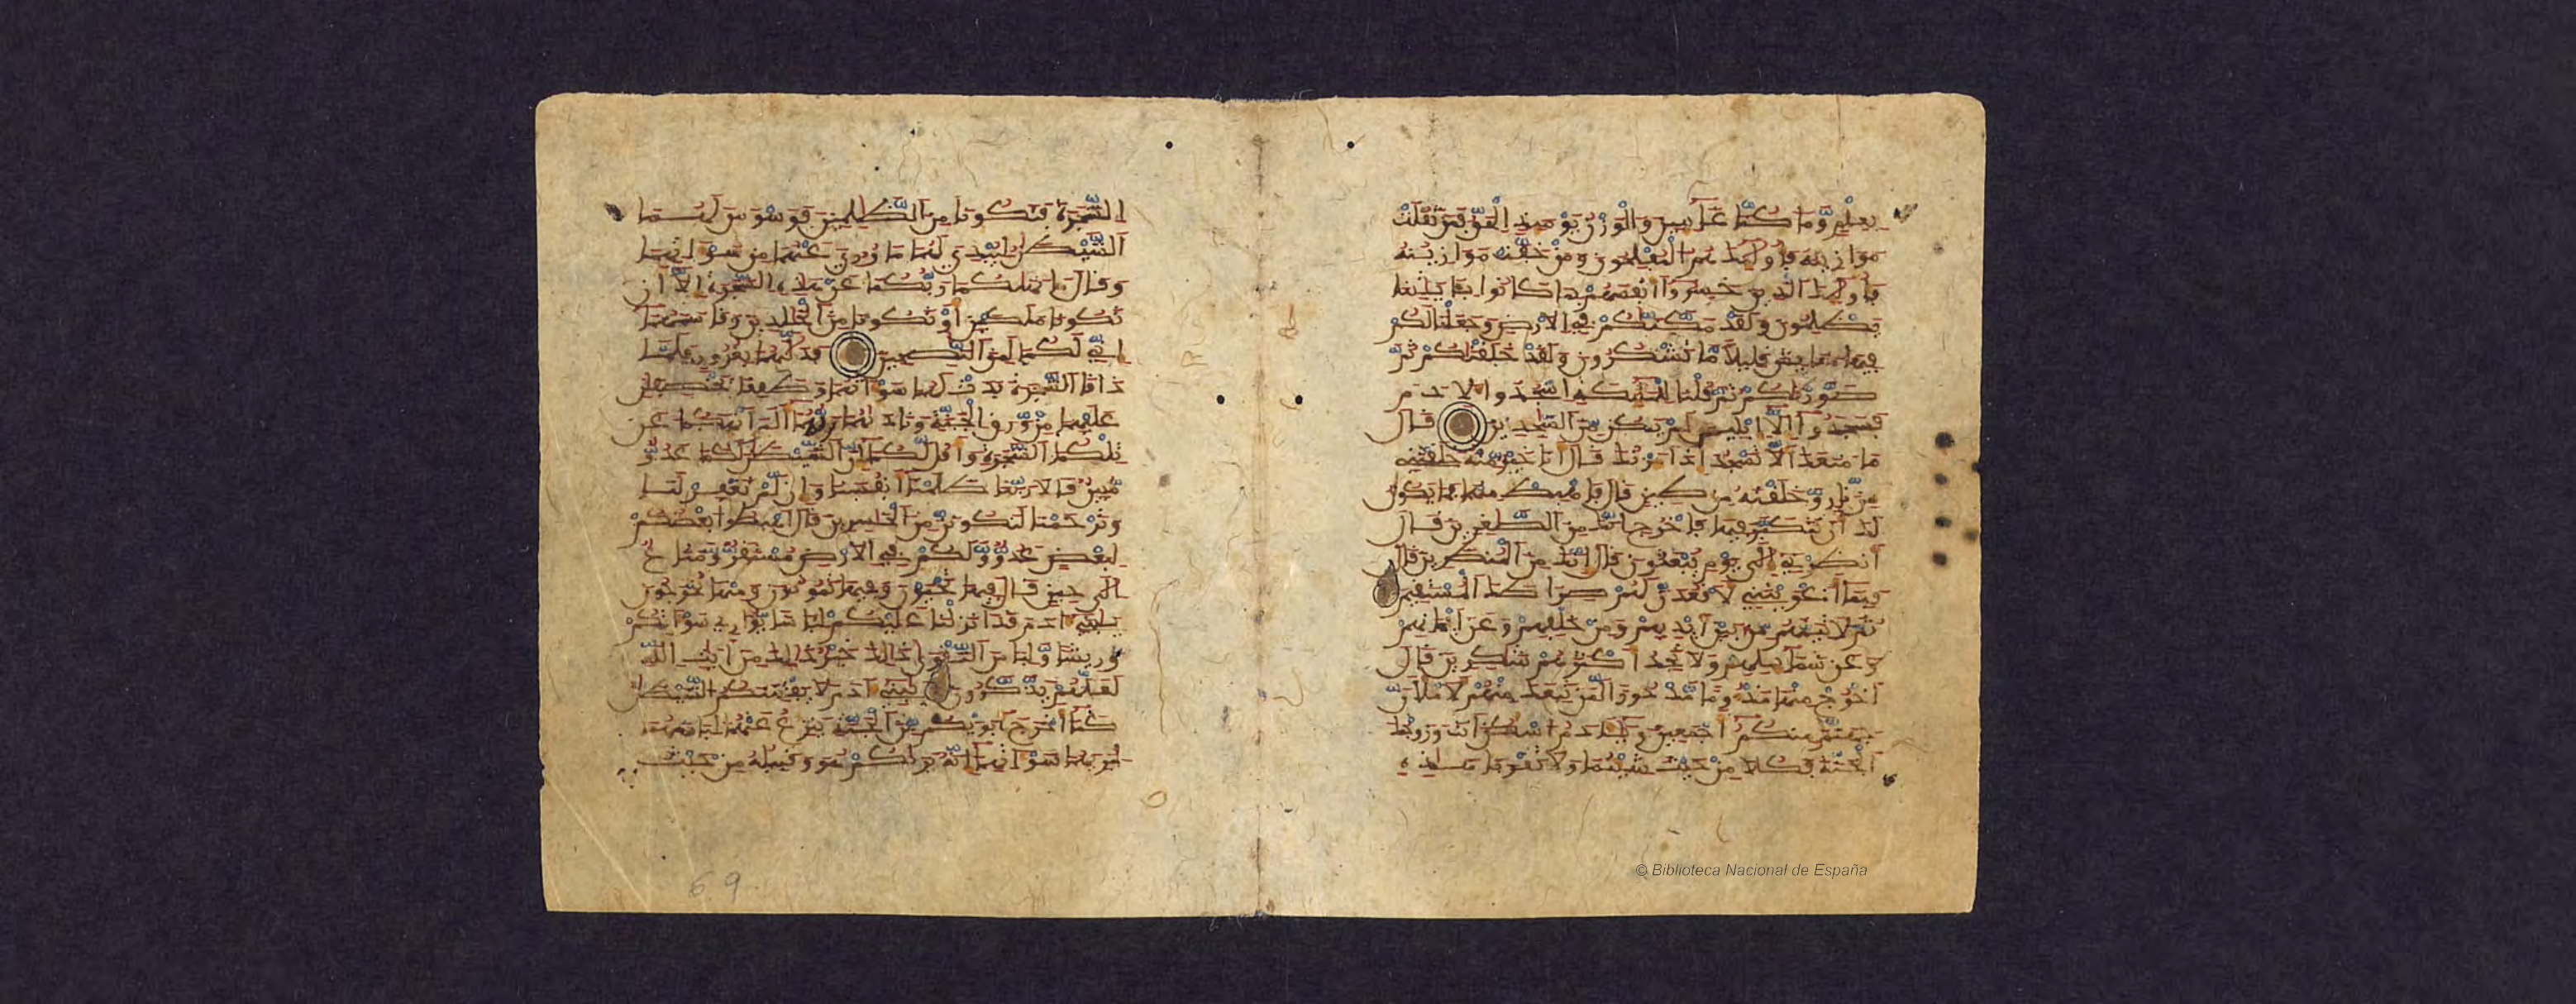 بعلم وما كنا غايبين والوزن يومئذ الحق فمن ثقلت
موازينه فاوليك هم المفلحون ومن خفت موازينه
فاوليك الذين خسروا انفسهم بما كانوا بايتنا
يظلمون ولقد مكنكم في الارض وجعلنا لكم
فيها معايش قليلا ما تشكرون ولقد خلقنكم ثم
صورنكم ثم قلنا للمليكة اسجدوا لادم
فسجدوا الا ابليس لم يكن من السجدين قال
ما منعك الا تسجد اذ امرتك قال انا خير منه خلقتني
من نار وخلقته من طين قال فاهبط منها فما يكون
لك ان تتكبر فيها فاخرج انك من الصغرين قال
انظرني الى يوم يبعثون قال انك من المنظرين قال
فبما اغويتني لاقعدن لهم صراطك المستقيم
ثم لاتينهم من بين ايديهم ومن خلفهم وعن ايمانهم
وعن شمايلهم ولا تجد اكثرهم شكرين قال
اخرج منها مذءوما مدحورا لمن تبعك منهم لاملان
جهنم منكم اجمعين ويادم اسكن انت وزوجك
الجنة فكلا من حيث شيتما ولا تقربا هذه
الشجرة فتكونا من الظلمين فوسوس لهما
الشيطن ليبدي لهما ما وري عنهما من سواتهما
وقال ما نهيكما ربكما عن هذه الشجرة الا ان
تكونا ملكين او تكونا من الخلدين وقاسمهما
اني لكما لمن النصحين فدليهما بغرور فلما
ذاقا الشجرة بدت لهما سواتهما وطفقا يخصفن
عليهما من ورق الجنة وناديهما ربهما الم انهكما عن
تلكما الشجرة واقل لكما ان الشيطن لكما عدو
مبين قالا ربنا ظلمنا انفسنا وان لم تغفر لنا
وترحمنا لنكونن من الخسرين قال اهبطوا بعضكم
لبعض عدو ولكم في الارض مستقر ومتاع
الى حين قال فيها تحيون وفيها تموتون ومنها تخرجون
يبني ادم قد انزلنا عليكم لباسا يواري سواتكم
وريشا ولباس التقوى ذلك خير ذلك من ايت الله
لعلهم يذكرون يبني ادم لا يفتننكم الشيطن
كما اخرج ابويكم من الجنة ينزع عنهما لباسهما
ليريهما سواتهما انه يريكم هو وقبيله من حيث
69
© Biblioteca Nacional de España